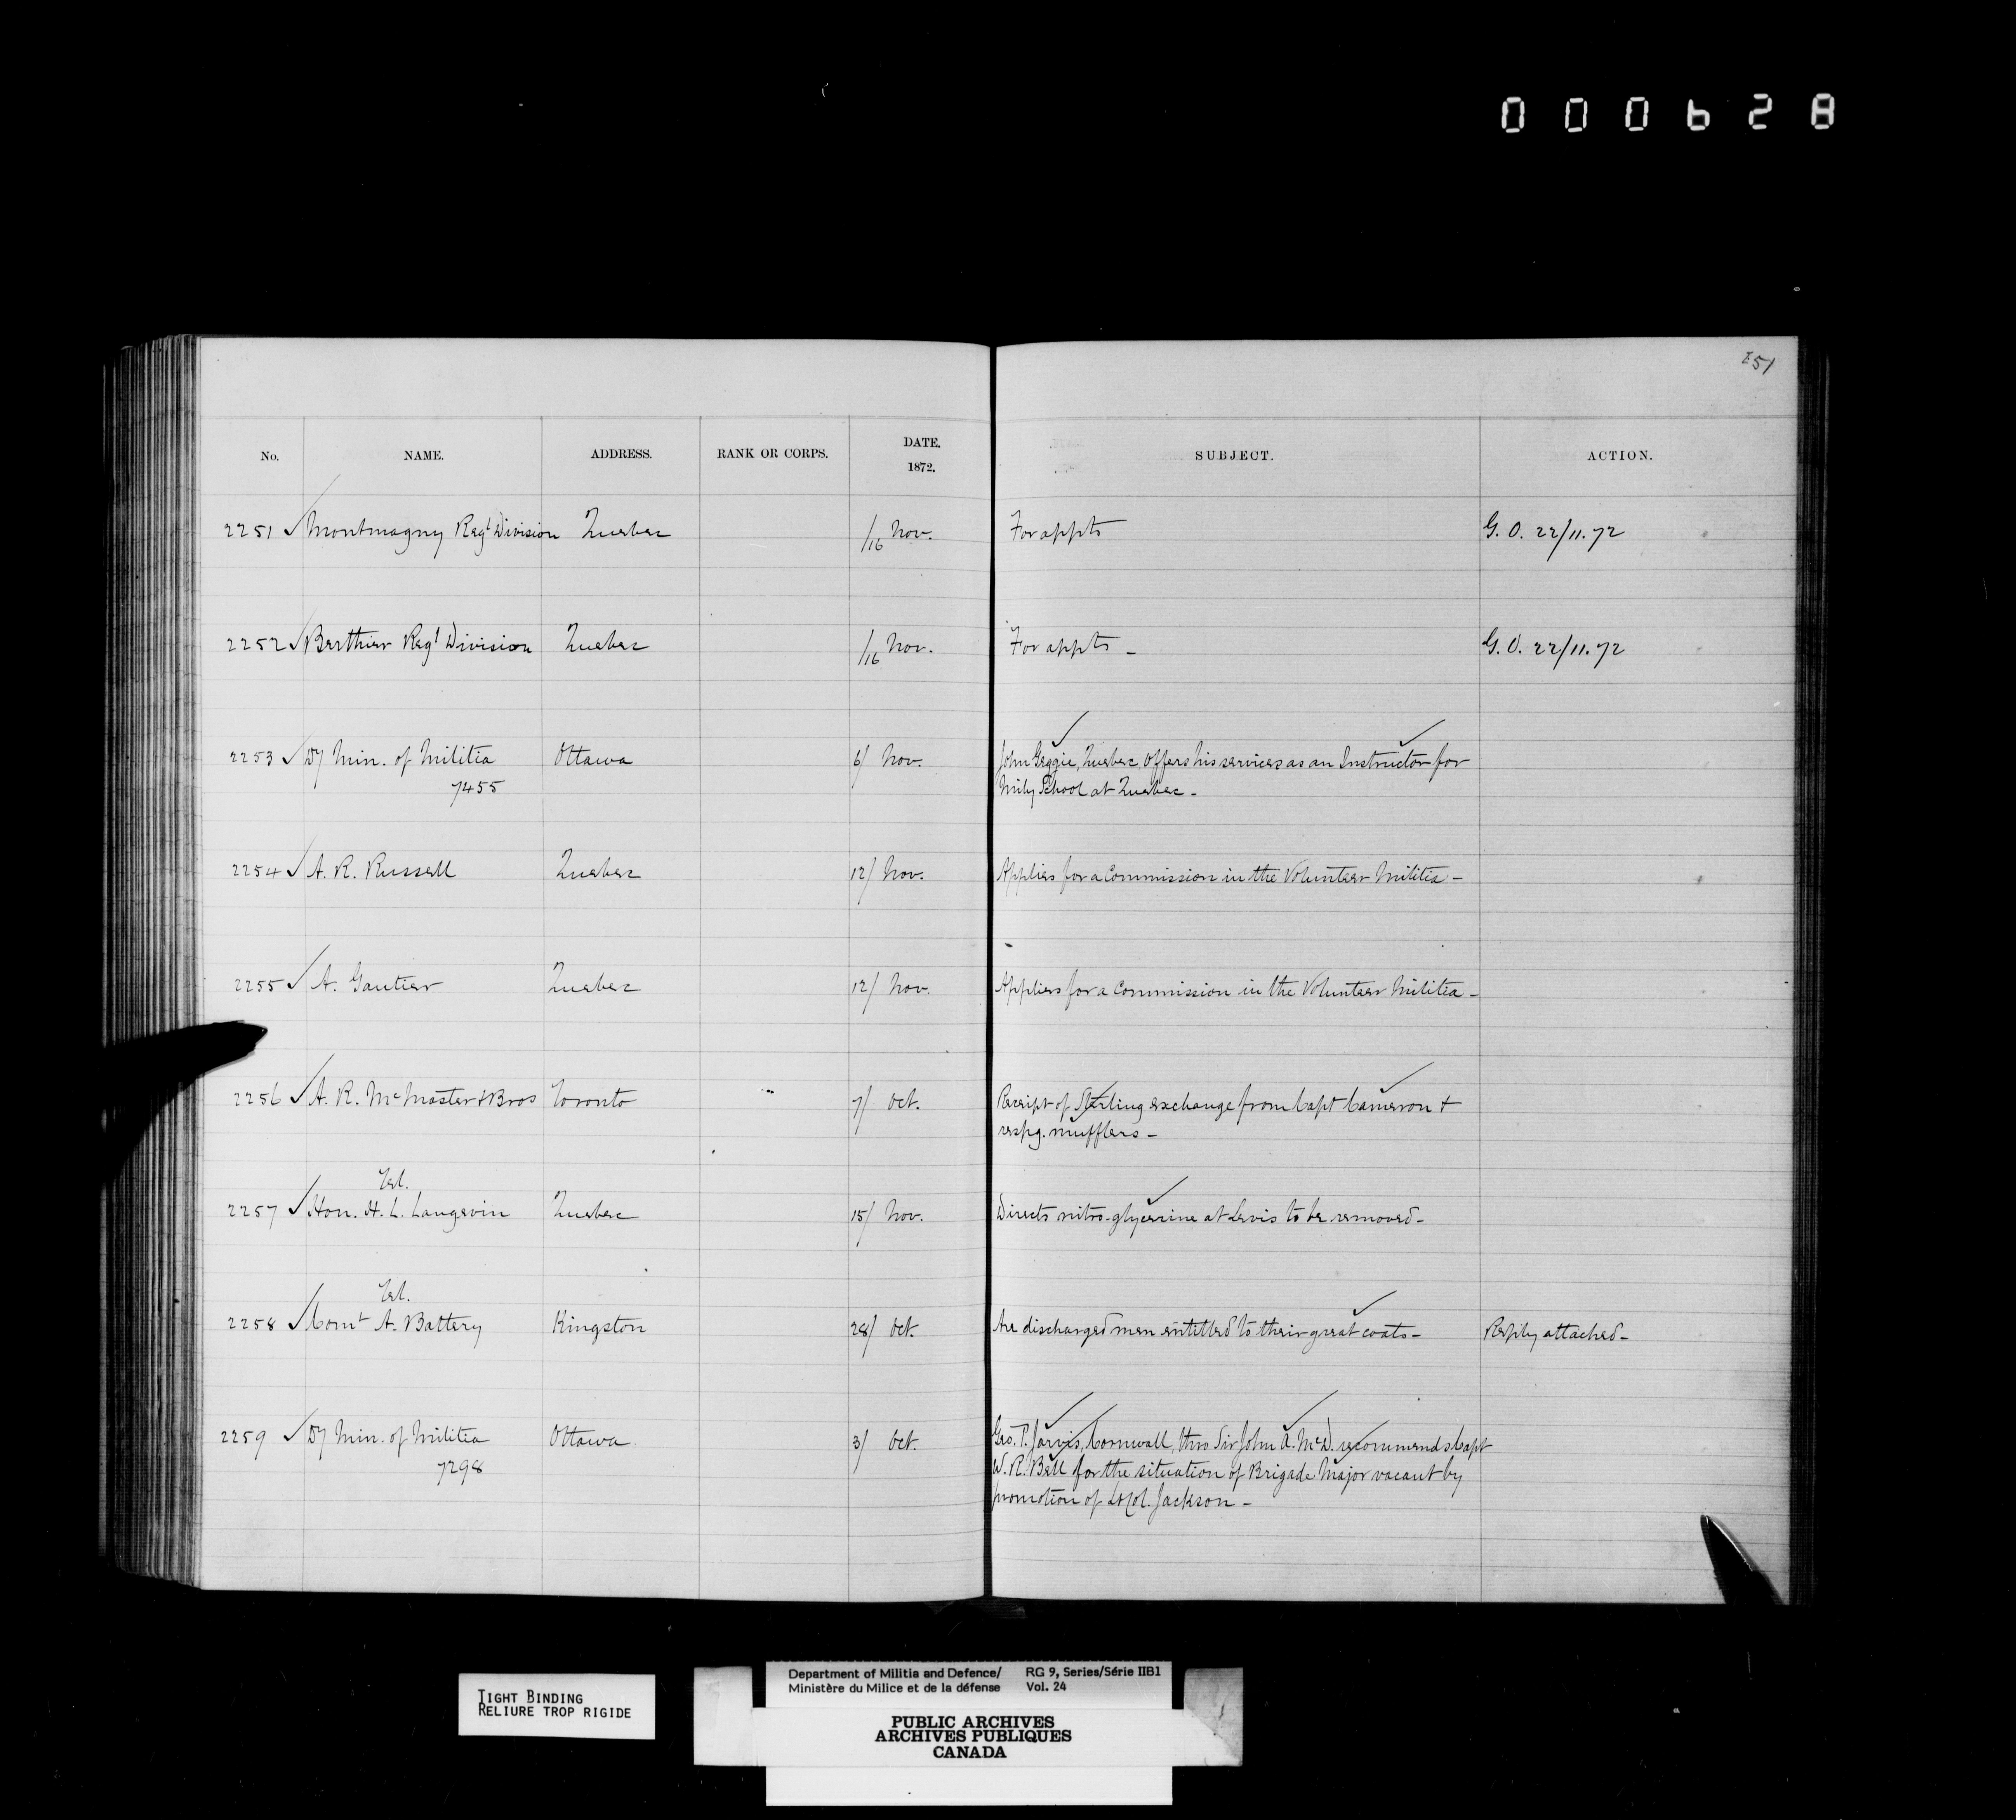 000628
251
No. NAME. ADDRESS. RANK OR CORPS. DATE. 1872. SUBJECT. ACTION.
2251 ✓ Montmagny Regl Division Quebec /16 Nov. For appts G. O. 22/11.72
2252 ✓ Berthier Regl Division Quebec /16 Nov. For appts - G. O. 22/11.72
2253 ✓ Dy Min. of Militia Ottawa 6/ Nov. John Geggie, Quebec, offers his services as an Instructor for
7455 Mily School at Quebec -
2254 ✓ A. R. Russell Quebec 12/ Nov. Applies for a Commission in the Volunteer Militia -
2255 ✓ A. Gautier Quebec 12/ Nov. Applies for a Commission in the Volunteer Militia -
2256 ✓ A. R. McMaster & Bros Toronto 7/ Oct. Receipt of Sterling exchange from Capt Cameron &
respg. mufflers -
Tel.
2257 ✓ Hon. H. L. Langevin Quebec 15/ Nov. Directs nitro-glycerine at Levis to be removed -
Tel.
2258 ✓ Comt A. Battery Kingston 28/ Oct. Are discharged men entitled to their great coats - Reply attached -
2259 ✓ Dy Min. of Militia Ottawa 3/ Oct. Geo. P. Jarvis, Cornwall, thro Sir John A. McD. recommends Capt
7298 W. R. Bell for the situation of Brigade Major vacant by
promotion of Lt Col. Jackson -
TIGHT BINDING
RELIURE TROP RIGIDE
Department of Militia and Defence/ RG 9, Series/Série IIB1
Ministère du Milice et de la défense Vol. 24
PUBLIC ARCHIVES
ARCHIVES PUBLIQUES
CANADA